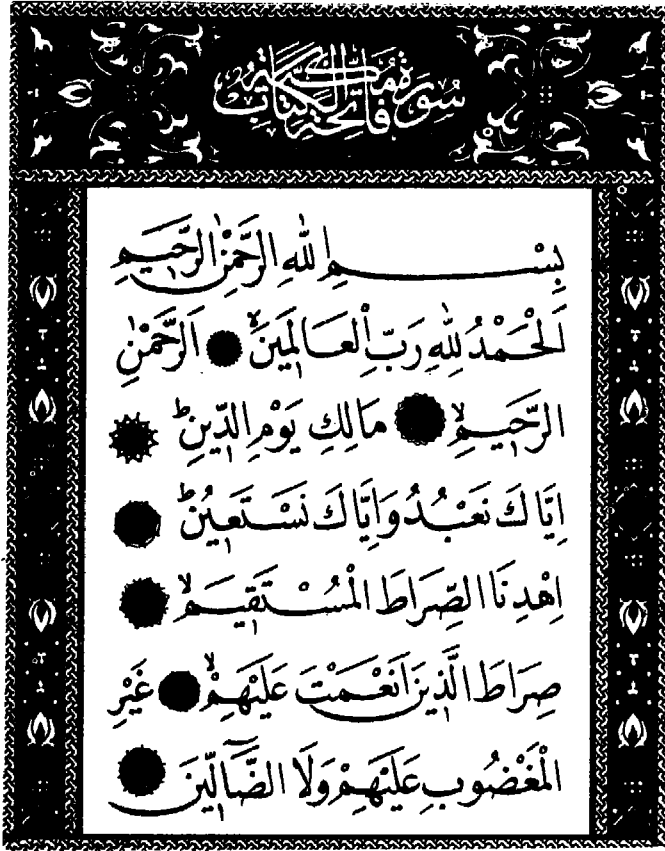 سُورَةُ فَاتِحَةِ الْكِتَابِ مَكِّيَّةٌ
بِسْمِ اللهِ الرَّحْمٰنِ الرَّحِيمِ
اَلْحَمْدُ لِلّٰهِ رَبِّ الْعَالَمِينَۙ اَلرَّحْمٰنِ
الرَّحِيمِۙ مَالِكِ يَوْمِ الدِّينِۜ
اِيَّاكَ نَعْبُدُ وَاِيَّاكَ نَسْتَعِينُۜ
اِهْدِنَا الصِّرَاطَ الْمُسْتَقِيمَۙ
صِرَاطَ الَّذِينَ اَنْعَمْتَ عَلَيْهِمْۙ غَيْرِ
الْمَغْضُوبِ عَلَيْهِمْ وَلَا الضَّٓالِّينَ